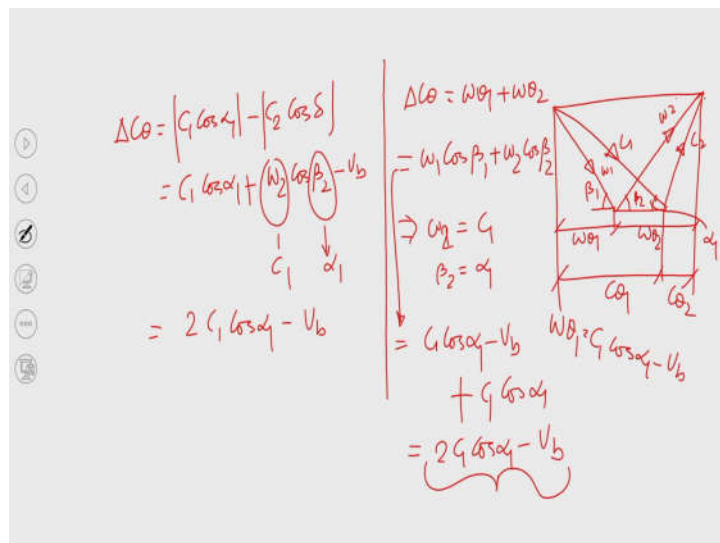 ΔCθ = |C₁ Cos α₁| - |C₂ Cos δ|
= C₁ Cos α₁ + W₂ Cos β₂ - U_b
C₁ α₁
= 2 C₁ Cos α₁ - U_b
ΔCθ = Wθ₁ + Wθ₂
= W₁ Cos β₁ + W₂ Cos β₂
⇒ W₂ = C₁
β₂ = α₁
= C₁ Cos α₁ - U_b
+ C₁ Cos α₁
= 2 C₁ Cos α₁ - U_b
C₁ W₁ W₂ C₂
β₁ β₂ α₁
Wθ₁ Wθ₂
Cθ₁ Cθ₂
Wθ₁ = C₁ Cos α₁ - U_b